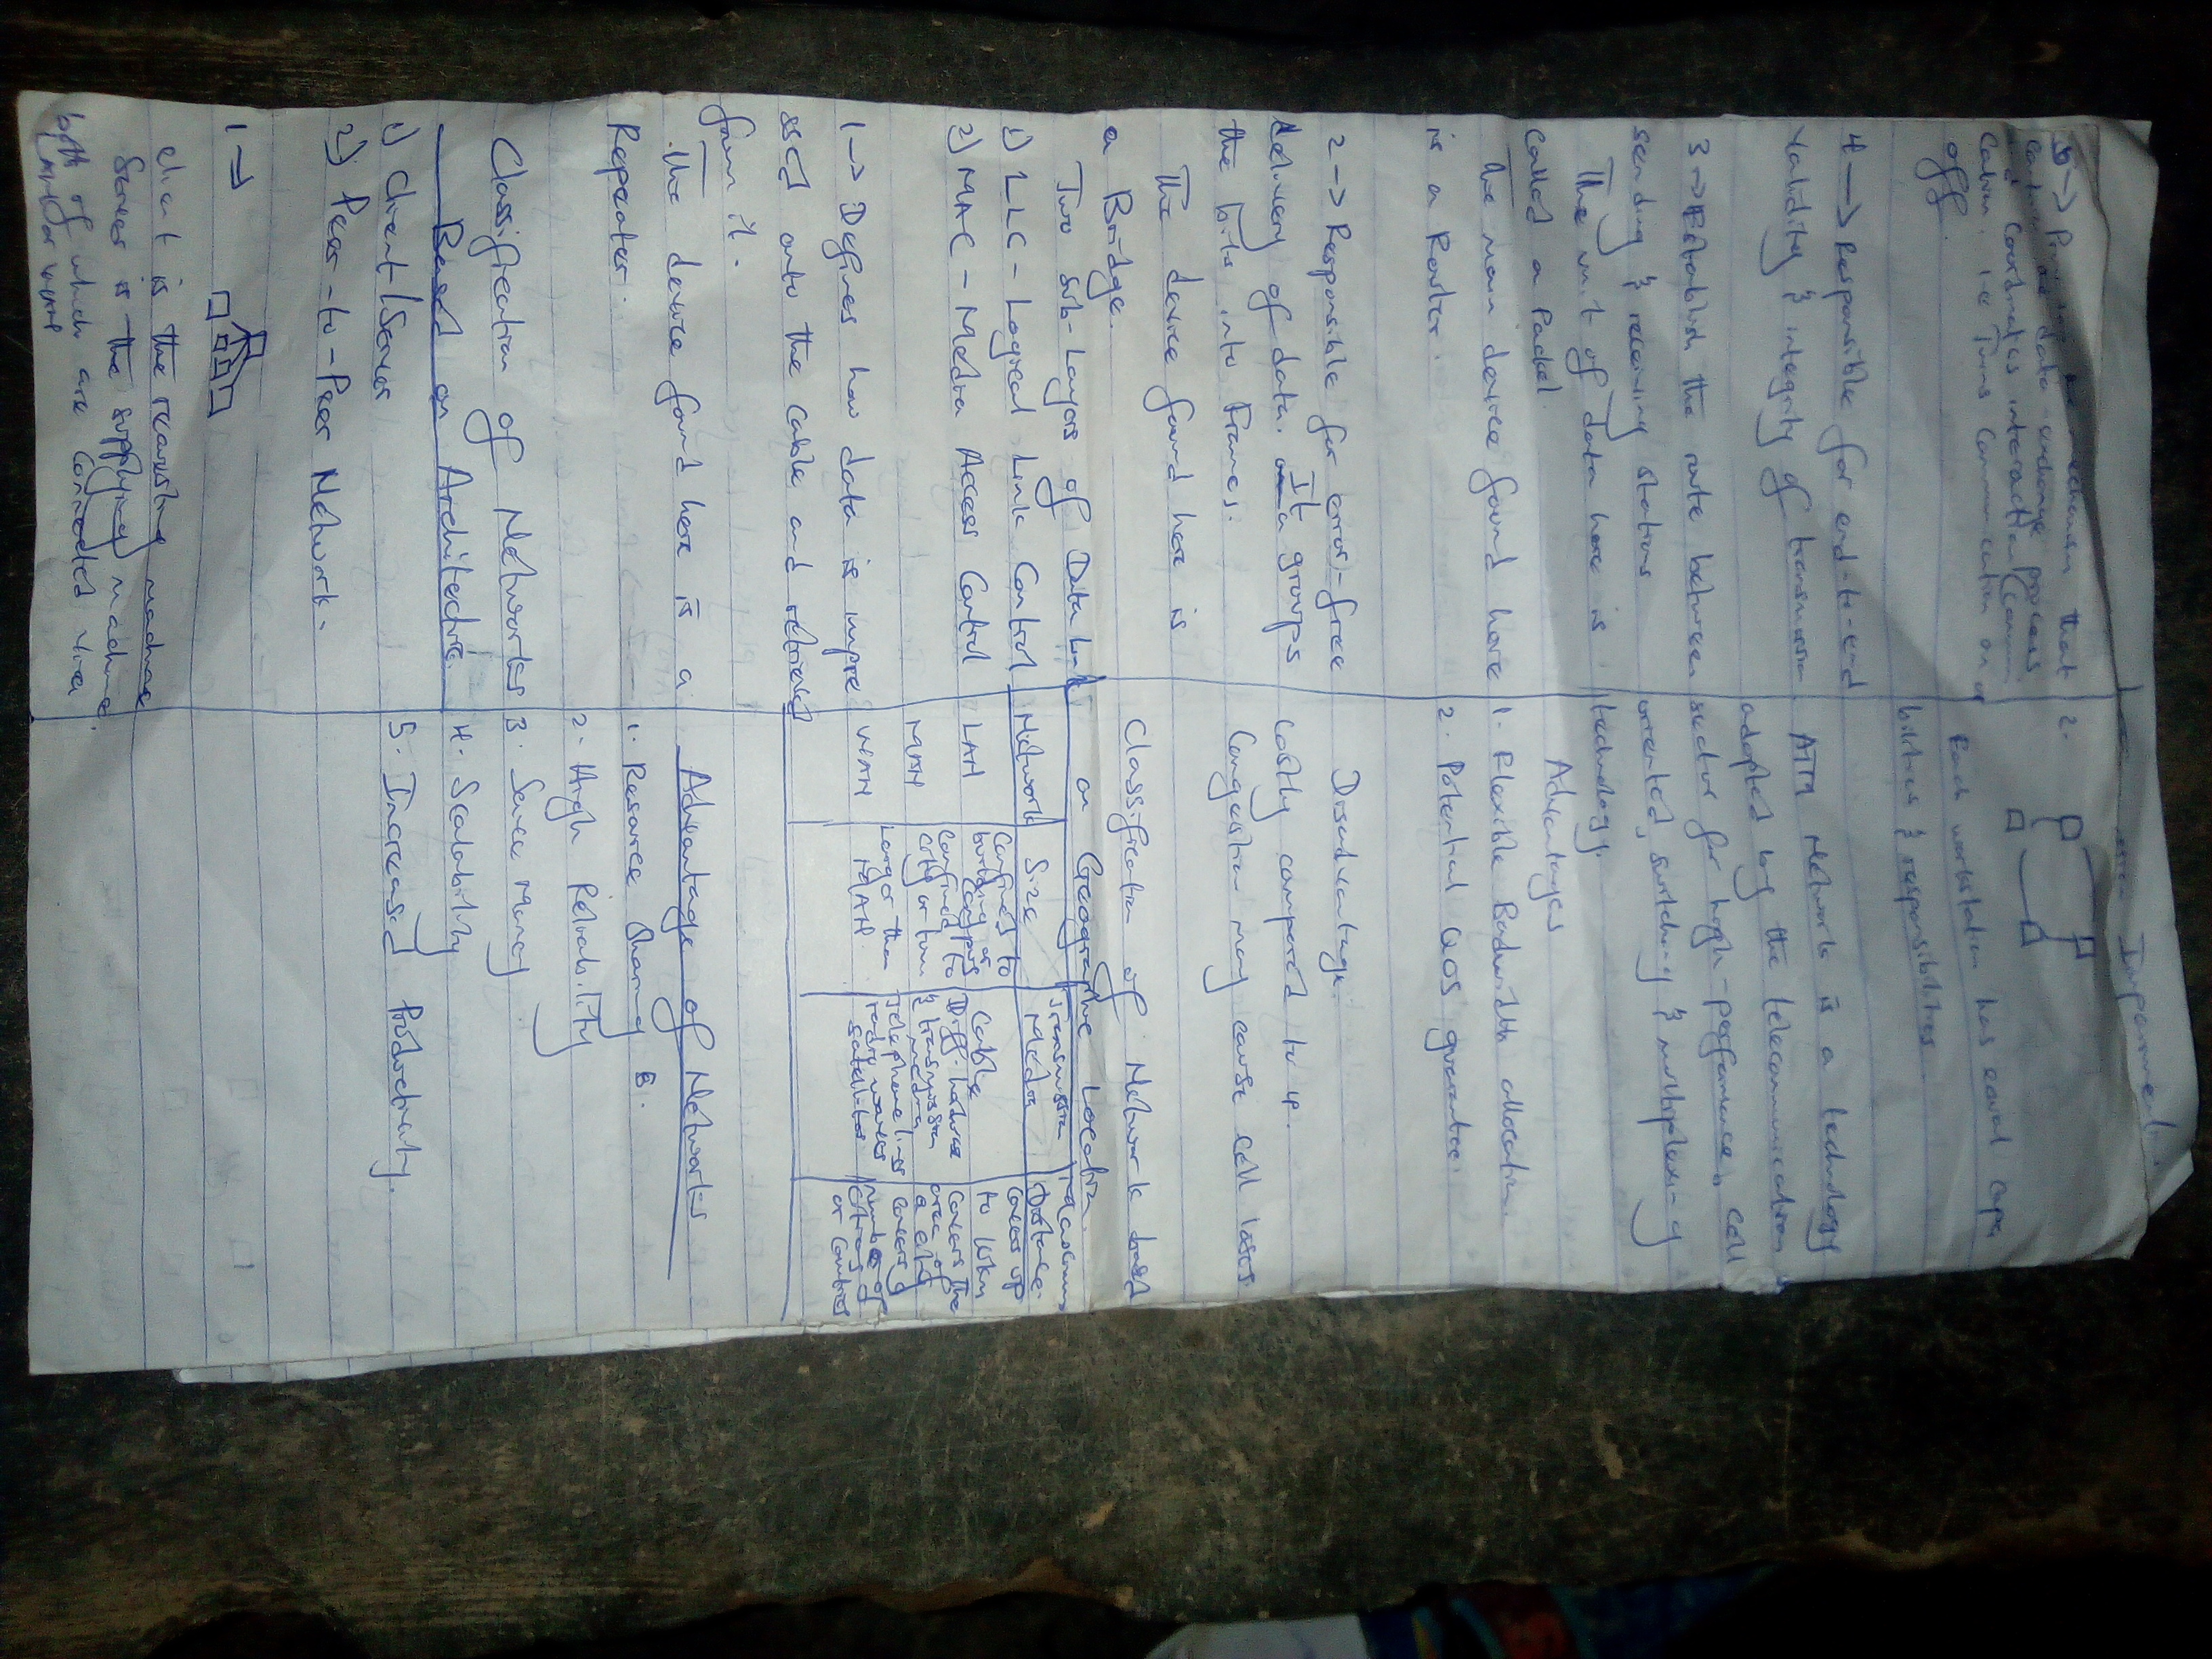 Improvement.
5 → Providing the mechanism that
data exchange process
coordinates interaction (Commun
cation. i.e Turns Communication on &
off.
4 → Responsible for end-to-end
validity & integrity of transmission
3 → Establish the route between
sending & receiving stations
The unit of data here is
called a Packet.
The main device found here
is a Router.
2 → Responsible for error-free
delivery of data. It groups
the bits into Frames.
The device found here is
a Bridge.
Two sub-Layers of Data Link
1) LLC - Logical Link Control
2) MAC - Media Access Control
1 → Defines how data is impre
ssed onto the cable and retrieved
from it.
The device found here is a
Repeater.
Classification of Networks
Based on Architecture.
1) Client/Server
2) Peer-to-Peer Network.
1 →
Client is the requesting machine
Server is the supplying machine.
both of which are connected via a
LAN or WAN
2.
Each workstation has equal capa
bilities & responsibilities
ATM Network is a technology
adopted by the telecommunication
sector for high-performance, cell
oriented, switching & multiplexing
technology.
Advantages
1. Flexible Bandwidth allocation.
2. Potential QOS guarantee.
Disadvantage.
Costly compared to IP.
Congestion may cause cell losses.
Classification of Network based
on Geographic Location.
Network Size Transmission Media Distance
LAN Confined to building or campus Cable Covers up to 10km
MAN Confined to city or town Diff. hardware & transmission media Covers the area of a city
WAN Larger than MAN. Telephone lines radio waves satellites Covers number of cities or Countries
Advantage of Networks
1. Resource Sharing 6.
2. High Reliability
3. Save money
4. Scalability
5. Increased Productivity.